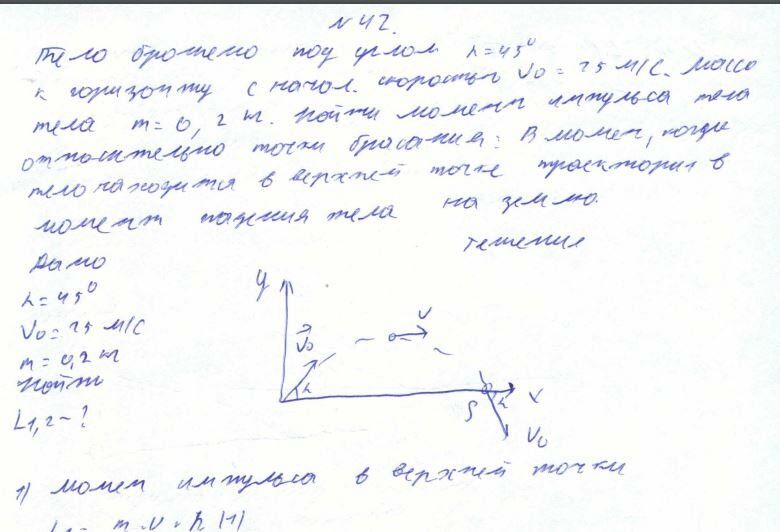 N 42.
Тело брошено под углом α = 45°
к горизонту с начал. скоростью V₀ = 25 м/с. Масса
тела m = 0,2 кг. Найти момент импульса тела
относительно точки бросания: В момен, когда
тело находится в верхней точке траектории в
момент падения тела на землю.
решение
Дано
α = 45°
V₀ = 25 м/с
m = 0,2 кг
Найти
L1,2 - ?
y
V₀
α
V
S
α
x
V₀
1) момен импульса в верхней точки
m · v · h (1)